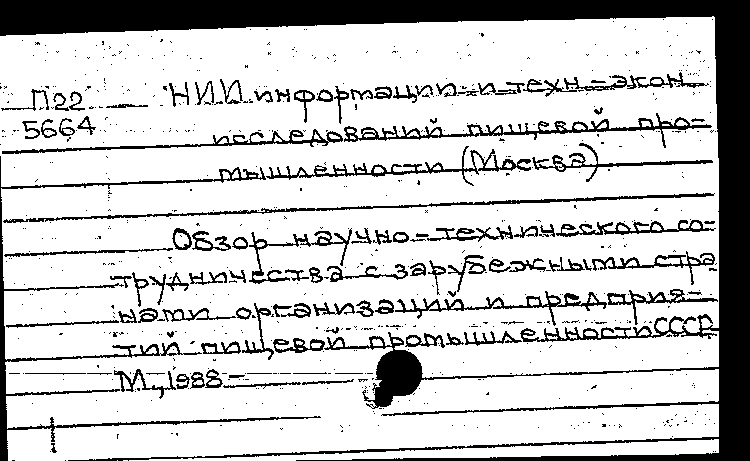 П22 НИИ информации и техн.-экон.
5664 исследований пищевой про-
мышленности (Москва)
Обзор научно-технического со-
трудничества с зарубежными стра
нами организаций и предприя-
тий пищевой промышленности СССР
М., 1988-